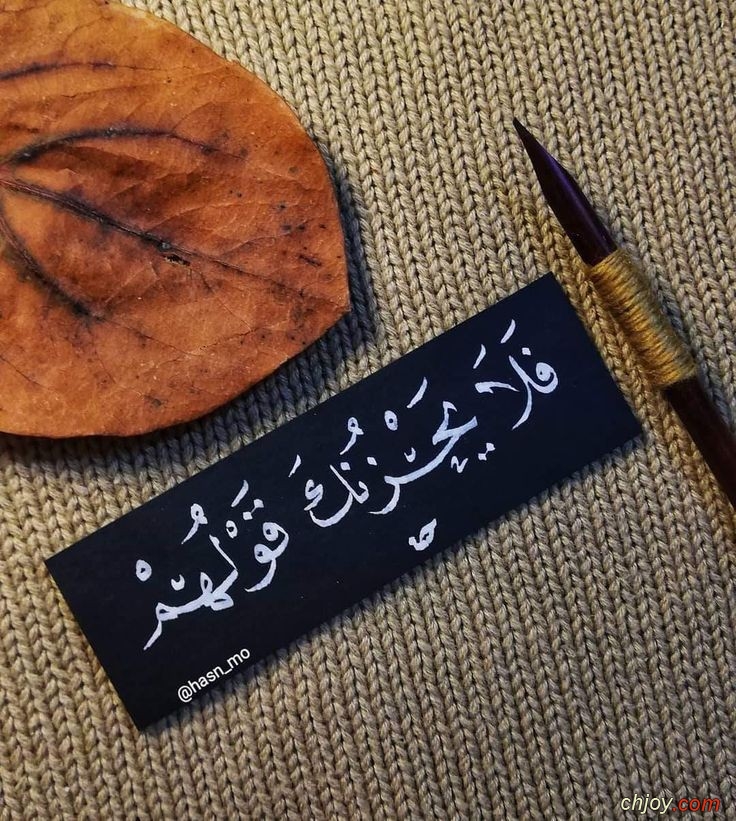 فَلَا يَحْزُنْكَ قَوْلُهُمْ
@hasn_mo
chjoy.com